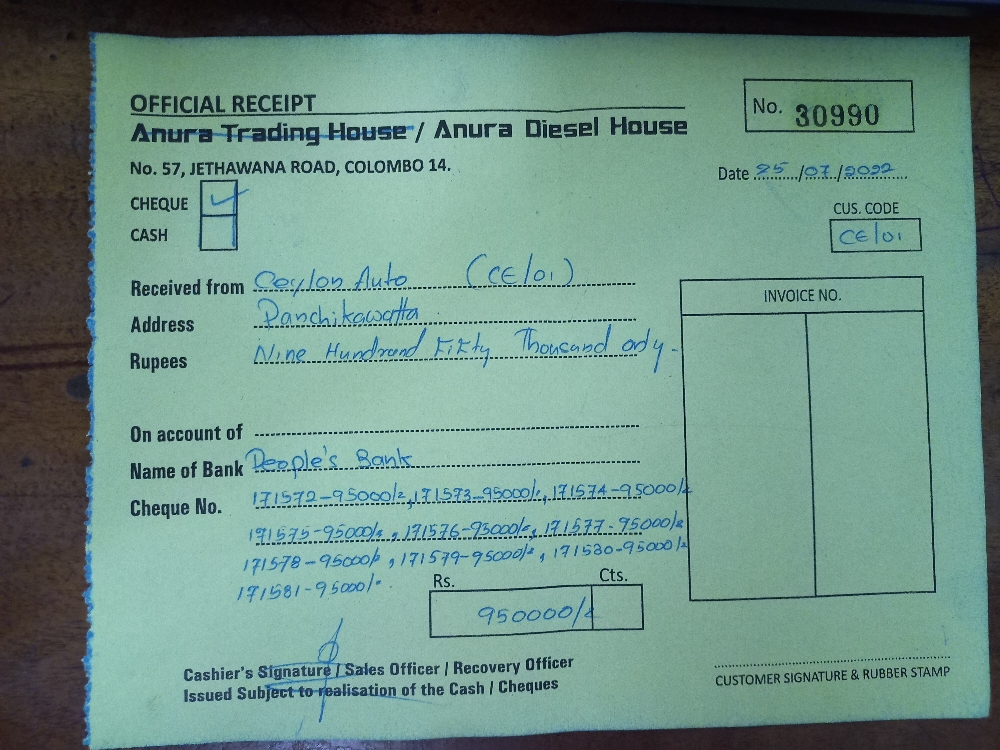 OFFICIAL RECEIPT
No. 30990
Anura Trading House / Anura Diesel House
No. 57, JETHAWANA ROAD, COLOMBO 14.
Date 25/07/2022
CHEQUE ✓
CUS. CODE
CASH
CE/01
Received from Ceylon Auto (CE/01)
INVOICE NO.
Address Panchikawatta
Rupees Nine Hundrand Fifty Thousand only -
On account of
Name of Bank People's Bank
Cheque No. 171572-95000/=, 171573-95000/=, 171574-95000/=
171575-95000/=, 171576-95000/=, 171577-95000/=
171578-95000/=, 171579-95000/=, 171580-95000/=
171581-95000/=.
Rs. Cts.
950000/=
Cashier's Signature / Sales Officer / Recovery Officer
Issued Subject to realisation of the Cash / Cheques
CUSTOMER SIGNATURE & RUBBER STAMP